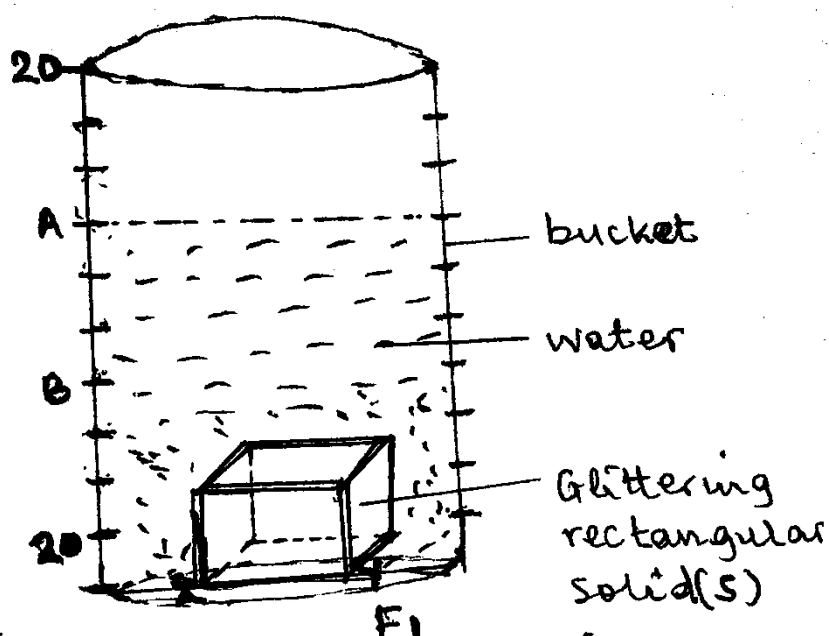 20
A
bucket
water
B
Glittering
rectangular
solid(s)
20
F1